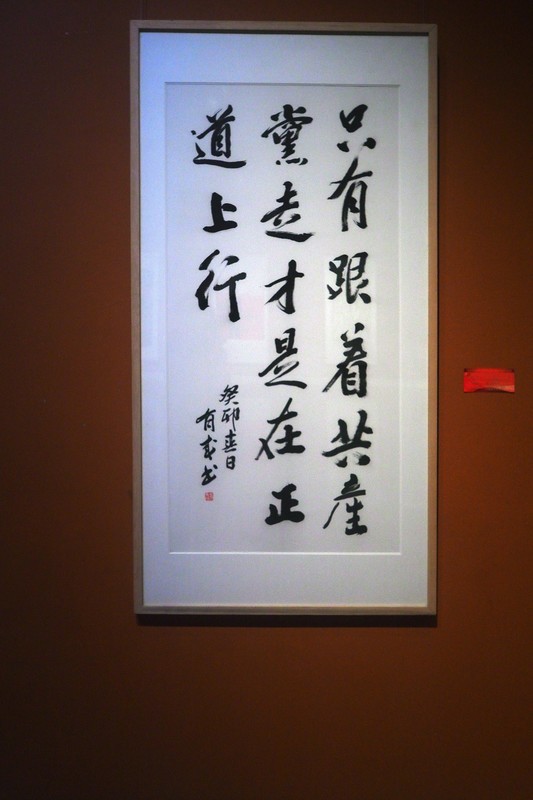 只有跟着共產
黨走才是在正
道上行
癸卯春日
有成书